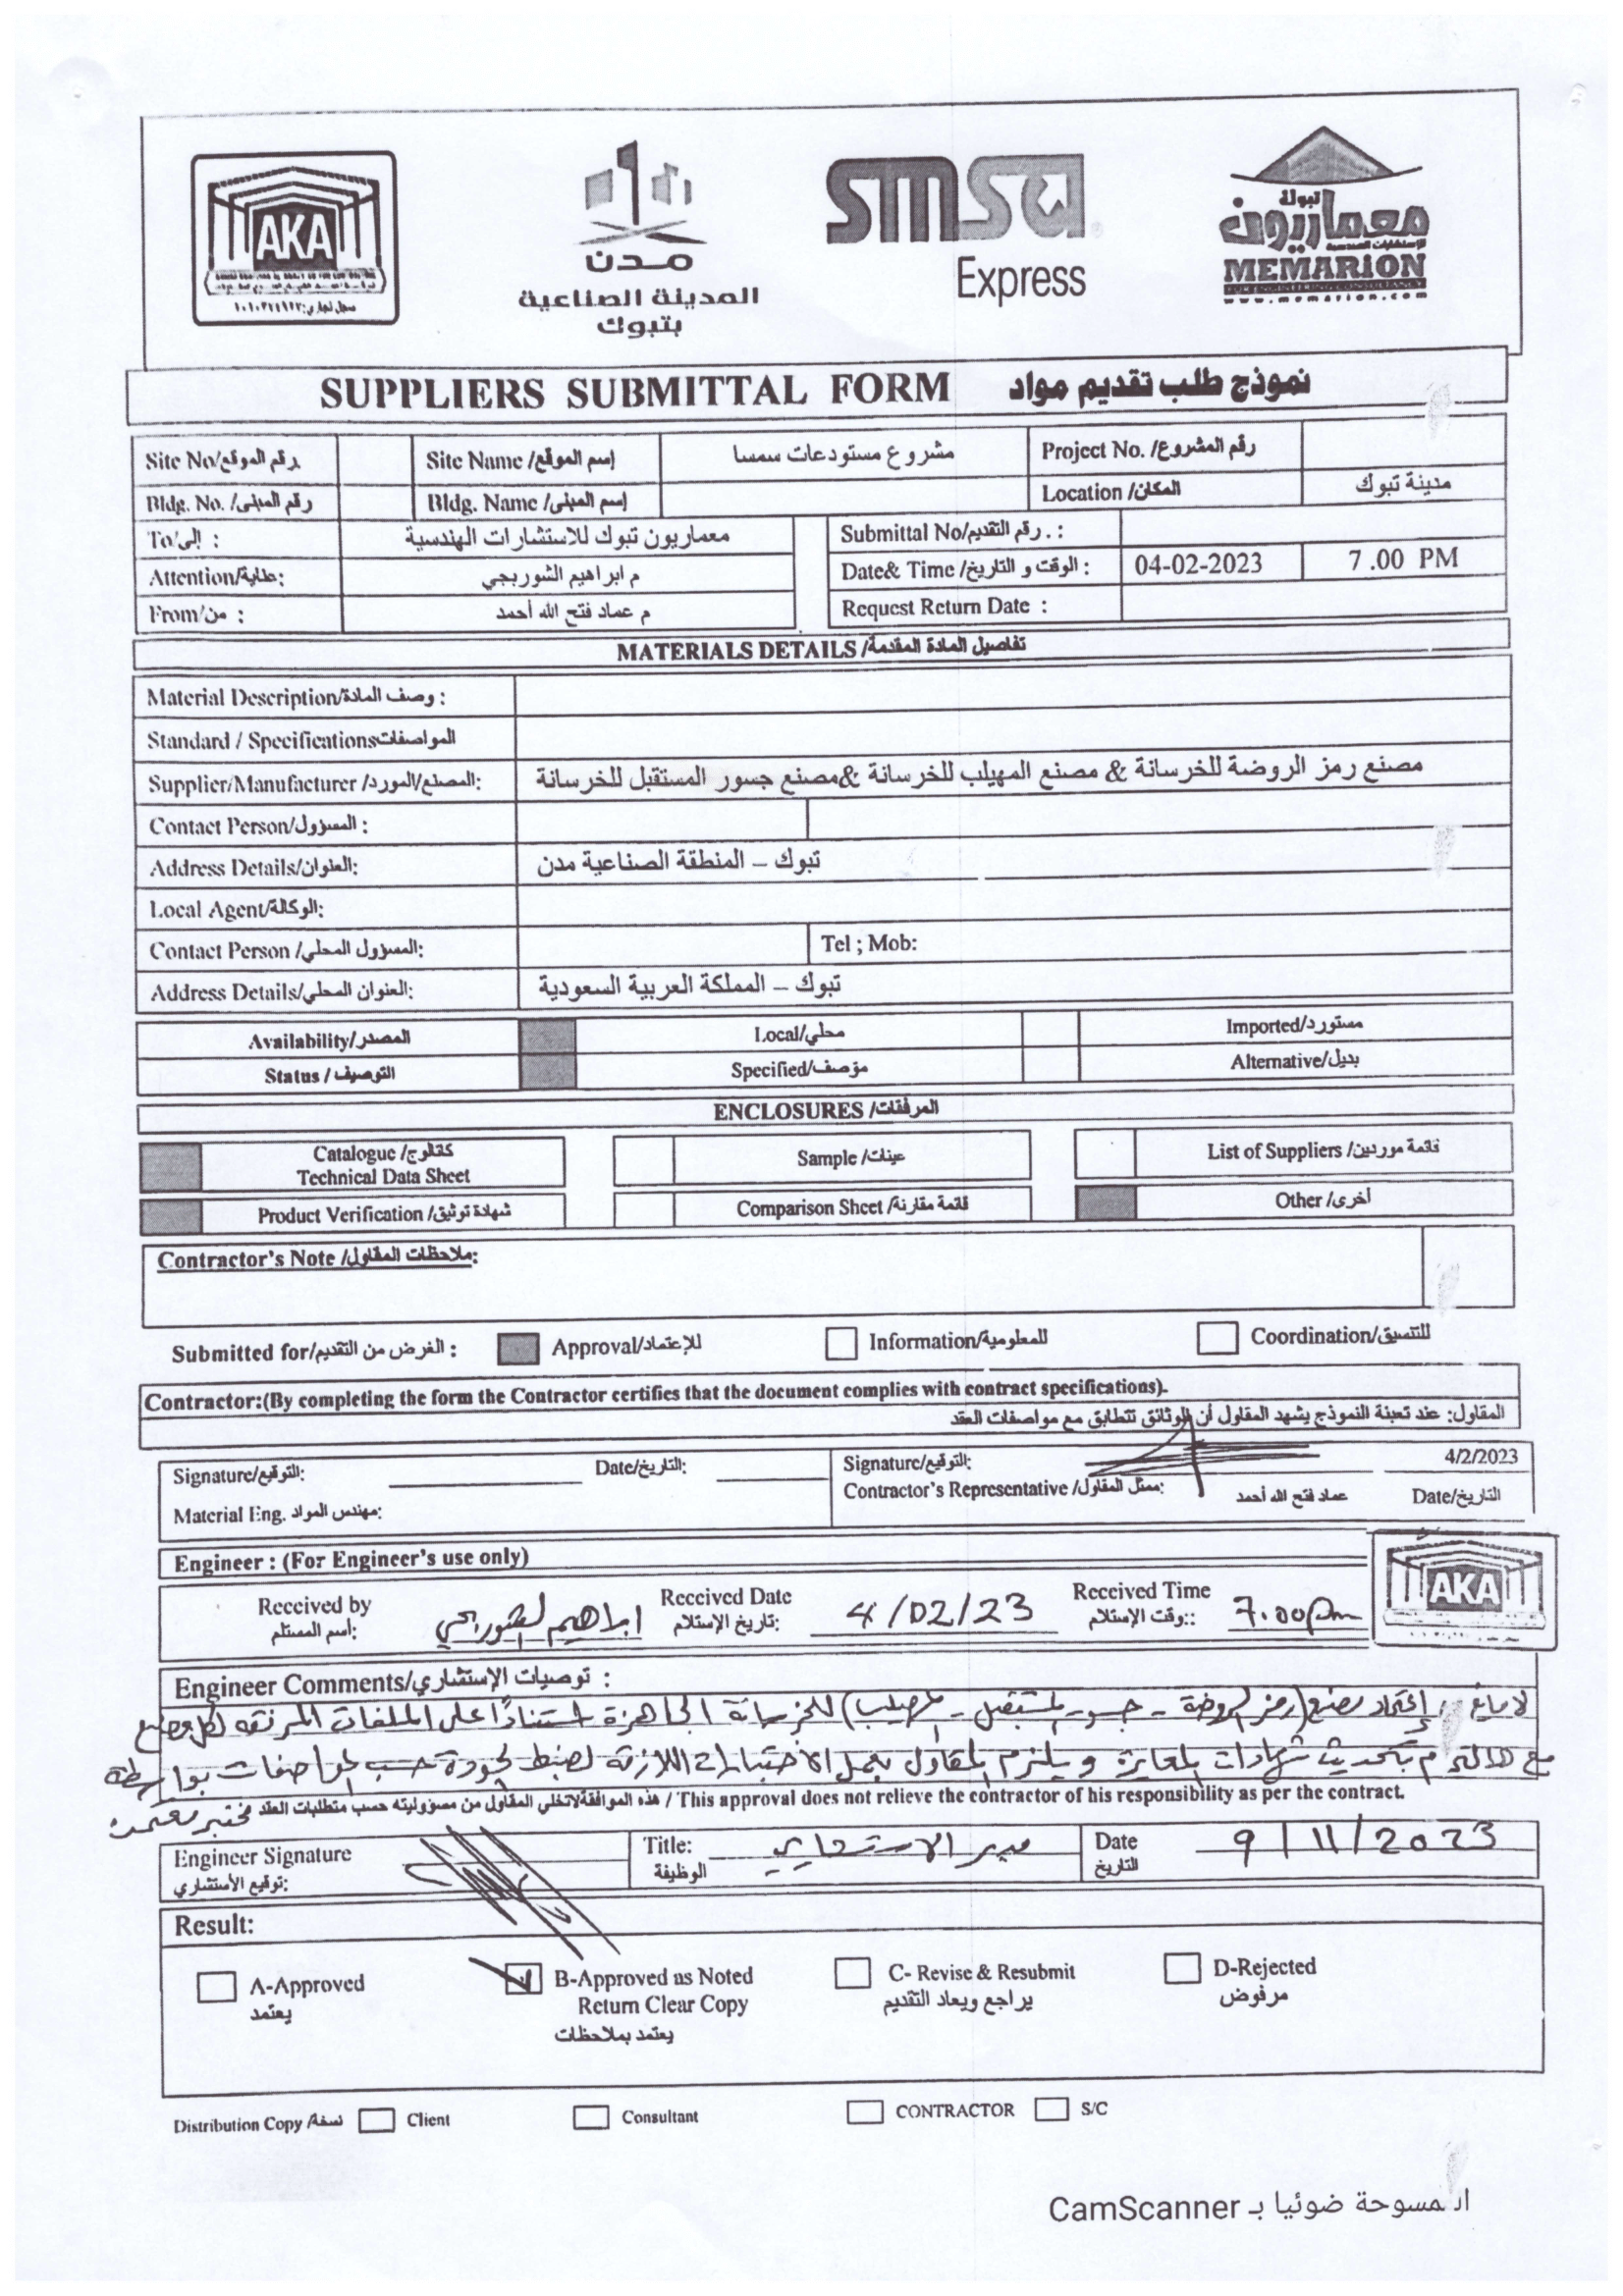 AKA
سجل تجاري:١٠١٠٣٧٤٩٦٢
مدن
المدينة الصناعية
بتبوك
smsa
Express
تبولة
معماريون
للإستشارات الهندسية
MEMARION
FOR ENGINEERING CONSULTANCY
www.memarion.com
SUPPLIERS SUBMITTAL FORM نموذج طلب تقديم مواد
Site No/رقم الموقع Site Name /إسم الموقع مشروع مستودعات سمسا Project No. /رقم المشروع
Bldg. No. /رقم المبنى Bldg. Name /إسم المبنى Location /المكان مدينة تبوك
To/إلى : معماريون تبوك للاستشارات الهندسية Submittal No/رقم التقديم . :
Attention/عناية: م ابراهيم الشوربجي Date& Time /الوقت و التاريخ : 04-02-2023 7 .00 PM
From/من : م عماد فتح الله أحمد Request Return Date :
MATERIALS DETAILS /تفاصيل المادة المقدمة
Material Description/وصف المادة :
Standard / Specificationsالمواصفات
Supplier/Manufacturer /المصنع/المورد: مصنع رمز الروضة للخرسانة & مصنع المهيلب للخرسانة &مصنع جسور المستقبل للخرسانة
Contact Person/المسؤول :
Address Details/العنوان: تبوك – المنطقة الصناعية مدن
Local Agent/الوكالة:
Contact Person /المسؤول المحلي: Tel ; Mob:
Address Details/العنوان المحلي: تبوك – المملكة العربية السعودية
Availability/المصدر Local/محلي Imported/مستورد
Status / التوصيف Specified/مؤصف Alternative/بديل
ENCLOSURES /المرفقات
Catalogue /كتالوج Sample /عينات List of Suppliers /قائمة موردين
Technical Data Sheet
Product Verification /شهادة توثيق Comparison Sheet /قائمة مقارنة Other /أخرى
Contractor's Note /ملاحظات المقاول:
Submitted for/الغرض من التقديم : Approval/للإعتماد Information/للمعلومية Coordination/للتنسيق
Contractor:(By completing the form the Contractor certifies that the document complies with contract specifications).
المقاول: عند تعبئة النموذج يشهد المقاول أن الوثائق تتطابق مع مواصفات العقد
Signature/التوقيع: Date/التاريخ: Signature/التوقيع: 4/2/2023
Material Eng. مهندس المواد: Contractor's Representative /ممثل المقاول: عماد فتح الله أحمد Date/التاريخ
Engineer : (For Engineer's use only)
AKA
Received by Received Date Received Time
أسم المستلم: ابراهيم الشوربجي تاريخ الإستلام: 4/02/23 وقت الإستلام:: 7.00pm
Engineer Comments/توصيات الإستشاري :
لا مانع من إعتماد مصنع (رمز الروضة - جسور المستقبل - المهيلب) للخرسانة الجاهزة استناداً على الملفات المرفقه لكل مصنع
مع الالتزام بتحديث شهادات المعايرة و يلتزم المقاول بعمل الاختبارات اللازمة لضبط الجودة حسب المواصفات بواسطة
مختبر معتمد
هذه الموافقةلاتخلي المقاول من مسؤوليته حسب متطلبات العقد / This approval does not relieve the contractor of his responsibility as per the contract.
Engineer Signature Title: Date
توقيع الأستشاري: الوظيفة مدير الاستشاري التاريخ 9/11/2023
Result:
A-Approved B-Approved as Noted C- Revise & Resubmit D-Rejected
يعتمد Return Clear Copy يراجع ويعاد التقديم مرفوض
يعتمد بملاحظات
Distribution Copy /نسخة Client Consultant CONTRACTOR S/C
الممسوحة ضوئيا بـ CamScanner